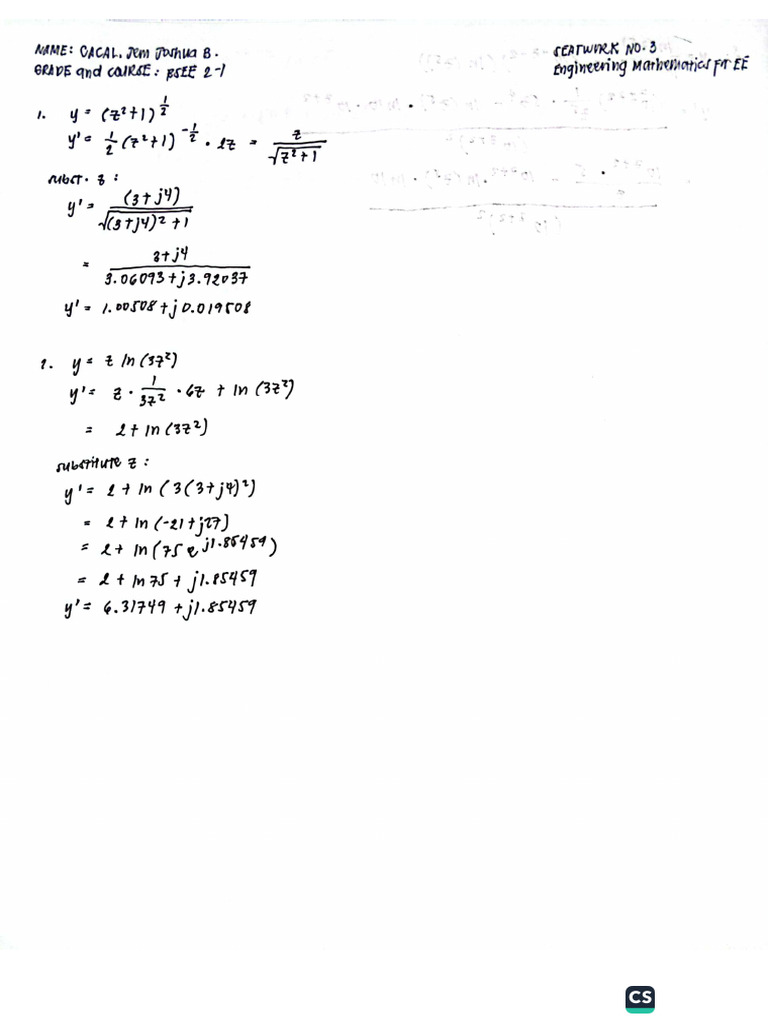 NAME: CACAL, Jem Joshua B.
GRADE and COURSE: BSEE 2-1
SEATWORK NO. 3
Engineering Mathematics for EE
1. y = (z²+1)^(1/2)
y' = 1/2 (z²+1)^(-1/2) · 2z = z/√(z²+1)
subst. z:
y' = (3+j4)/√((3+j4)²+1)
= 3+j4/3.06093+j3.92037
y' = 1.00508+j0.019508
2. y = z ln(3z²)
y' = z · 1/3z² · 6z + ln(3z²)
= 2+ln(3z²)
substitute z:
y' = 2+ln(3(3+j4)²)
= 2+ln(-21+j27)
= 2+ln(75e^(j1.85459))
= 2+ln75+j1.85459
y' = 6.31749+j1.85459
CS